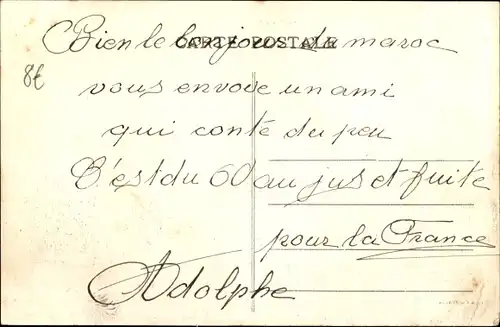 CARTE POSTALE
Bien le bonjour du maroc
8€
vous envoye un ami
qui conte du peu
C'est du 60 au jus et fuite
pour la France
Adolphe